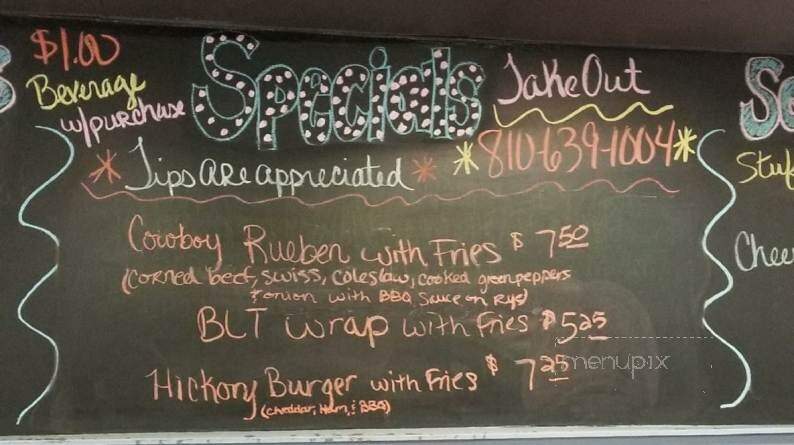 $1.00
Beverage
w/purchase
Specials
Take Out
* 810-639-1004 *
* Tips are appreciated *
Cowboy Rueben with Fries $7.50
(corned beef, swiss, coleslaw, cooked green peppers
& onion with BBQ Sauce on Rye)
BLT Wrap with Fries $5.25
Hickory Burger with Fries $7.25
(cheddar, Ham, & BBQ)
menupix
Stuf
Chee